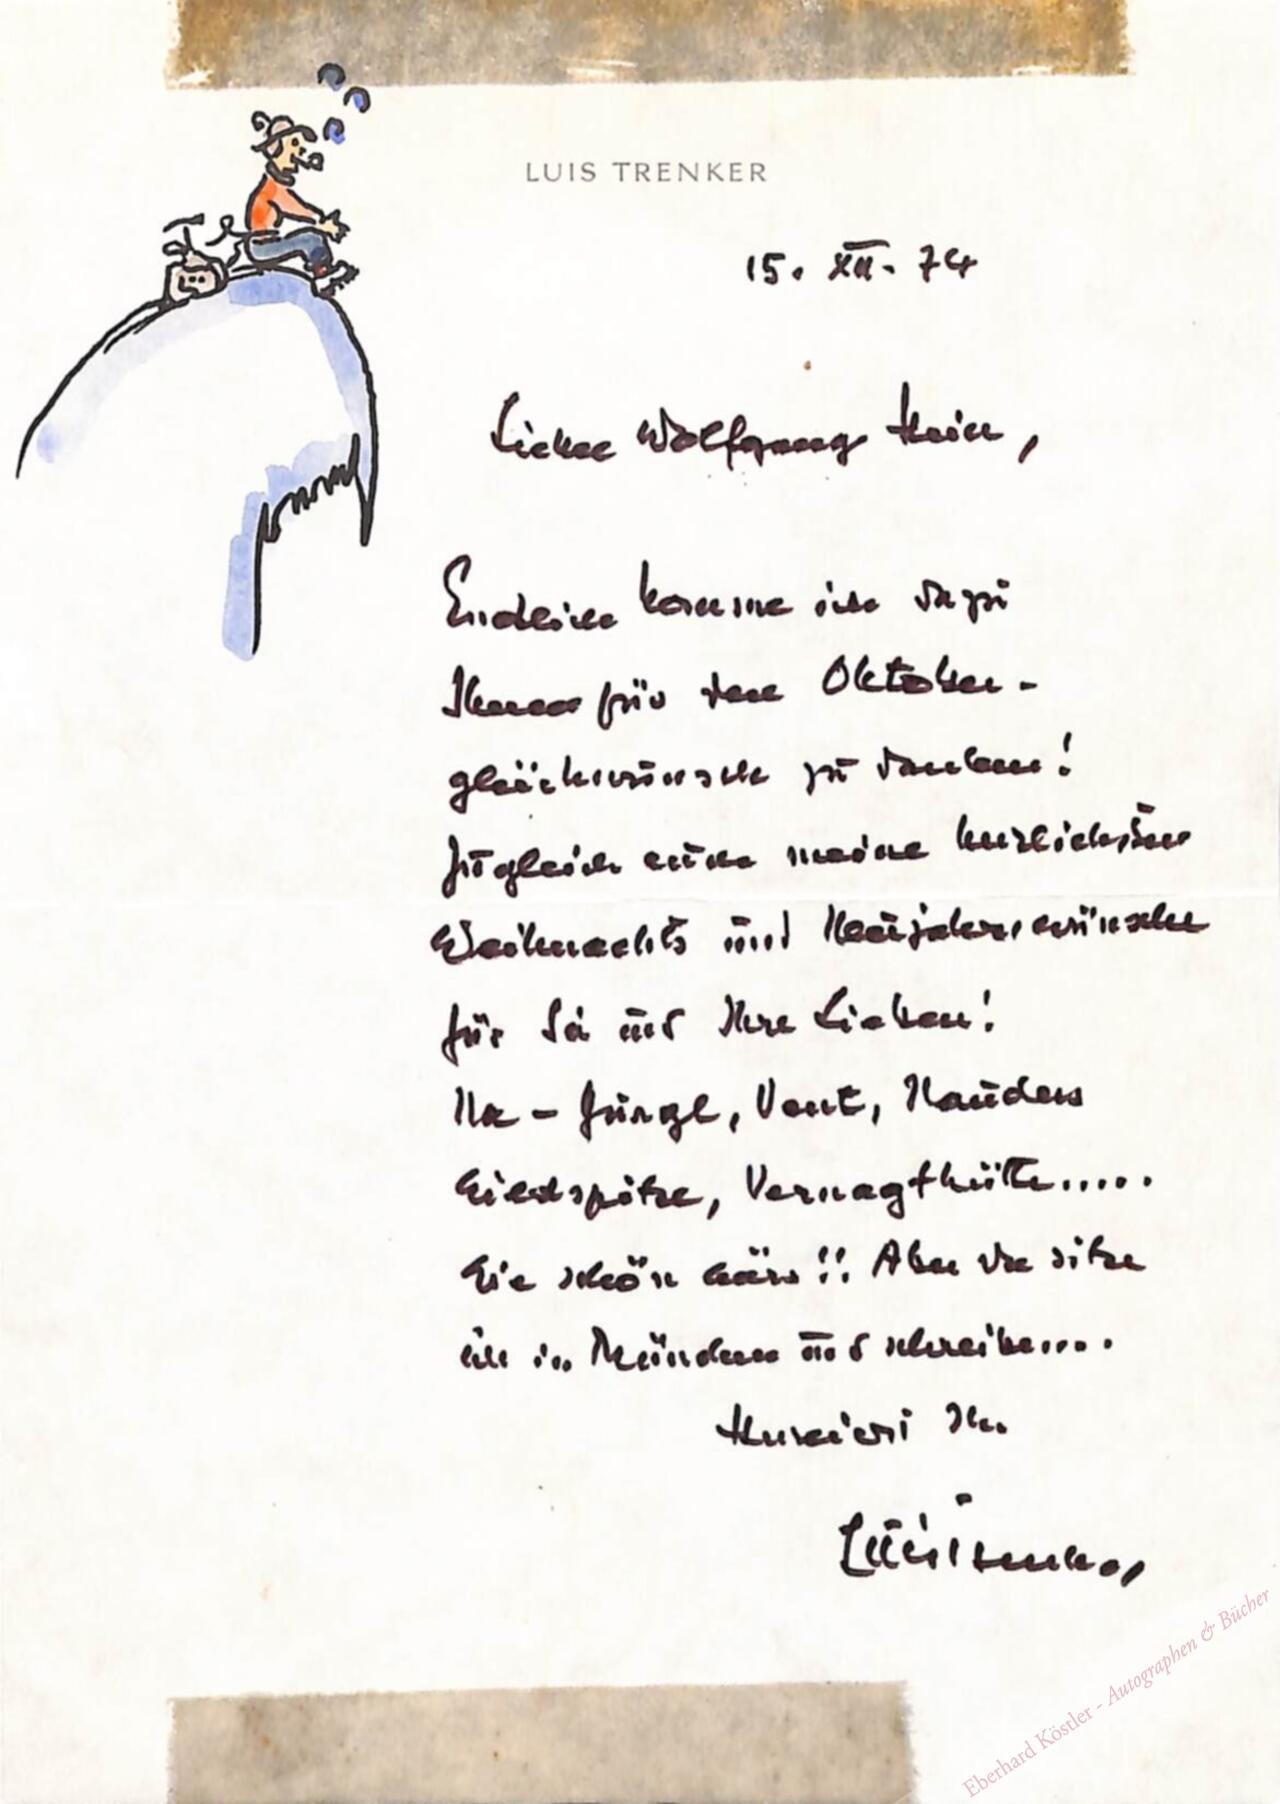 LUIS TRENKER
15. XII. 74
Lieber Wolfgang
Endlich komme ich dazu
Ihnen für den Oktober-
glückwunsch zu danken!
Zugleich auch meine herzlichsten
Weihnachts und Neujahrswünsche
für Sie und Ihre Lieben!
Na - Gurgl, Vent, Nauders
Wildspitze, Vernagthütte.....
Wie schön wärs!! Aber da sitze
ich in München und schreibe....
Ihr
Luis Trenker
Eberhard Köstler - Autographen & Bücher